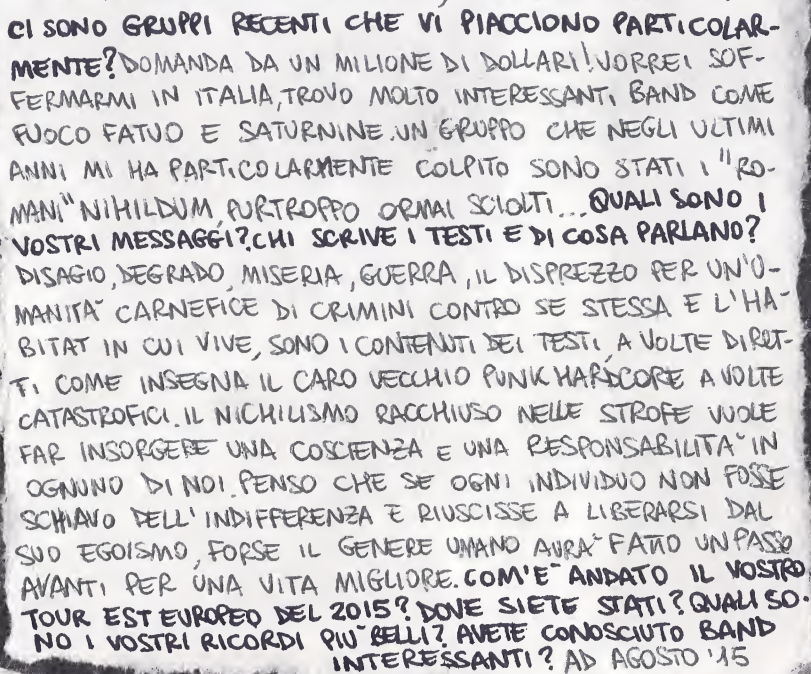 CI SONO GRUPPI RECENTI CHE VI PIACCIONO PARTICOLAR-
MENTE? DOMANDA DA UN MILIONE DI DOLLARI! VORREI SOF-
FERMARMI IN ITALIA, TROVO MOLTO INTERESSANTI BAND COME
FUOCO FATUO E SATURNINE. UN GRUPPO CHE NEGLI ULTIMI
ANNI MI HA PARTICOLARMENTE COLPITO SONO STATI I "RO-
MANI" NIHILDUM, PURTROPPO ORMAI SCIOLTI... QUALI SONO I
VOSTRI MESSAGGI? CHI SCRIVE I TESTI E DI COSA PARLANO?
DISAGIO, DEGRADO, MISERIA, GUERRA, IL DISPREZZO PER UN'U-
MANITA' CARNEFICE DI CRIMINI CONTRO SE STESSA E L'HA-
BITAT IN CUI VIVE, SONO I CONTENUTI DEI TESTI, A VOLTE DIRET-
TI COME INSEGNA IL CARO VECCHIO PUNK HARDCORE A VOLTE
CATASTROFICI. IL NICHILISMO RACCHIUSO NELLE STROFE VUOLE
FAR INSORGERE UNA COSCIENZA E UNA RESPONSABILITA' IN
OGNUNO DI NOI. PENSO CHE SE OGNI INDIVIDUO NON FOSSE
SCHIAVO DELL'INDIFFERENZA E RIUSCISSE A LIBERARSI DAL
SUO EGOISMO, FORSE IL GENERE UMANO AVRA' FATTO UN PASSO
AVANTI PER UNA VITA MIGLIORE. COM'E' ANDATO IL VOSTRO
TOUR EST EUROPEO DEL 2015? DOVE SIETE STATI? QUALI SO-
NO I VOSTRI RICORDI PIU' BELLI? AVETE CONOSCIUTO BAND
INTERESSANTI? AD AGOSTO '15